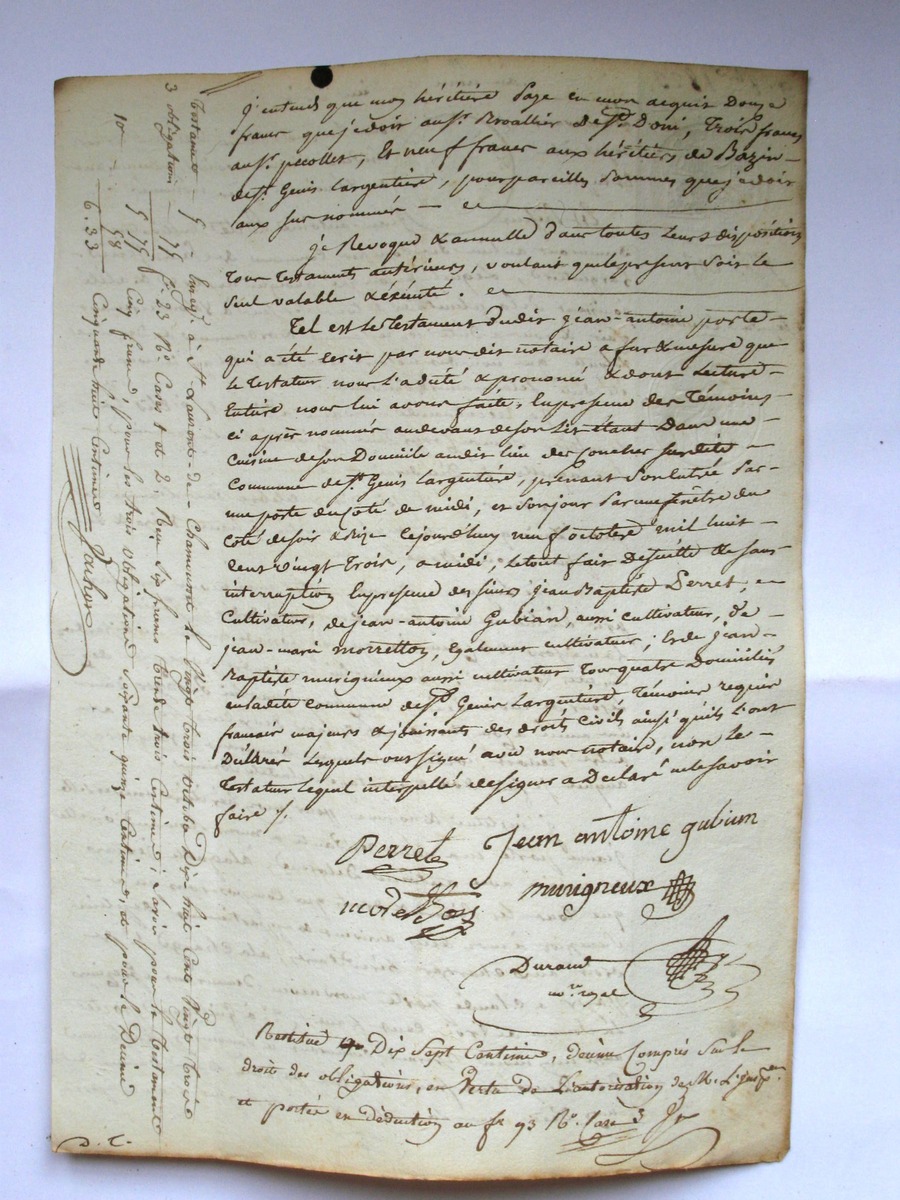 J'entends que mon héritière paye en mon acquit douze
francs que je dois au Sr. Broallier de St. Doni, Trois francs
au Sr. pecollet, Et neuf francs aux héritiers de Bazin
de St. Genis L'argentière, pour pareilles sommes que je dois
aux sus nommés
je Revoque & annulle dans toutes leurs dispositions
Tous Testaments antérieurs, voulant que le présent soit le
seul valable & éxécuté.
Tel est le Testament dudit jean-antoine porte
qui a été écrit par nous dit notaire a fur & mesure que
le Testateur nous l'a dicté & prononcé & dont Lecture
entière nous lui avons faite, En presence des Témoins
ci après nommés au devant de son Lit étant Dans une
Cuisine de son Domicile audit lieu des joncher susdite
Commune de St. Genis L'argentière, prenant son Entrée par
une porte du côté de midi, et son jour par une fenêtre du
coté de soir & bize Cejourd'huy neuf octobre mil huit
cent vingt Trois, a midi, le tout fait de suitte & sans
interruption En presence des sieurs jean Baptiste Perret,
Cultivateur, de jean-antoine Gubian, aussi cultivateur, de
jean-marie morretton, Egalement cultivateur; Et de jean
Baptiste murigneux aussi cultivateur Tous quatre Domiciliés
en ladite commune de St. Genis L'argentière, Témoins requis
francais majeurs & jouissants des droits civils ainsi qu'ils l'ont
Déclaré Lesquels ont signé avec nous notaire, non le
Testateur lequel interpellé de signer a Déclaré ne le savoir
faire /.
Perret
Jean antoine gubian
moretton
murigneux
Durand
nore. royal
Restitué Dix Sept Centimes, décime Compris Sur le
droit des obligations, en Vertu de L'autorisation de M. L'Inspr.
et portée en déduction au fo. 93 Ro. Case 3
Testament 5
3 obligations 75
5 75
58
6.33
Enregé. à St. Laurent-de-Chamousset le Vingt trois octobre Dix-huit Cent Vingt Trois
fo. 23 Ro. Cases 1 et 2. Reçu Six francs trente trois Centimes; Savoir pour le testament
Cinq francs, pour les trois obligations Soixante quinze Centimes, et pour le Décime
Cinquante huit Centimes